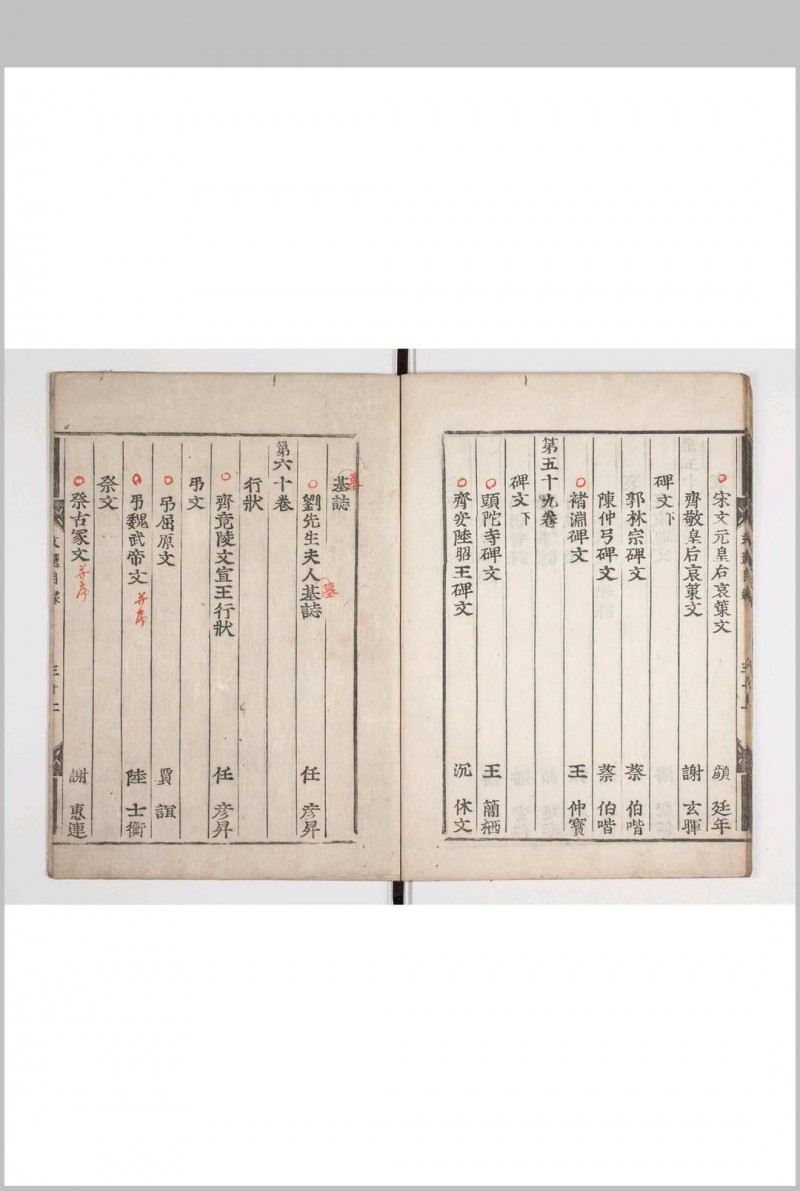 宋文元皇后哀策文 顔延年
齊敬皇后哀策文 謝玄暉
碑文下
郭林宗碑文 蔡伯喈
陳仲弓碑文 蔡伯喈
褚淵碑文 王仲寶
第五十九卷
碑文下
頭陀寺碑文 王簡栖
齊安陸昭王碑文 沉休文
基誌 墓
劉先生夫人基誌 墓 任彦昇
第六十卷
行狀
齊竟陵文宣王行狀 任彦昇
弔文
弔屈原文 賈誼
弔魏武帝文 并序 陸士衡
祭文
祭古冢文 并序 謝惠連
文選目録 三十二